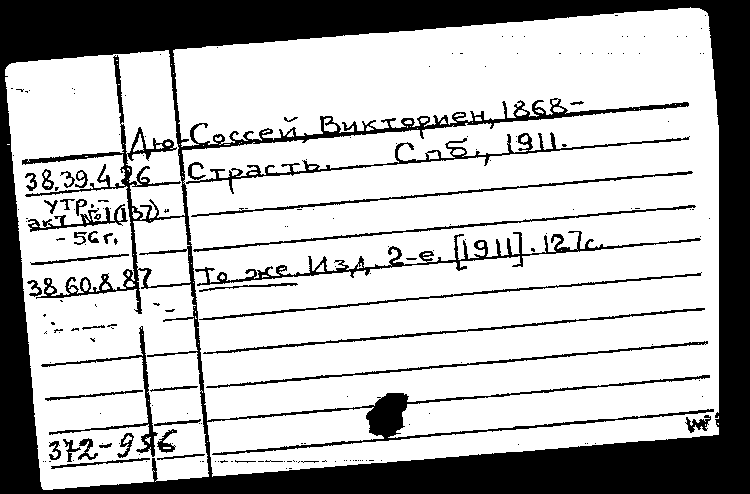 Дю-Соссей, Викториен, 1868-
38.39.4.26 Страсть. Спб., 1911.
утр.-
акт №1(137).
-56г.
38.60.8.87 То же. Изд. 2-е. [1911]. 127с.
372-956